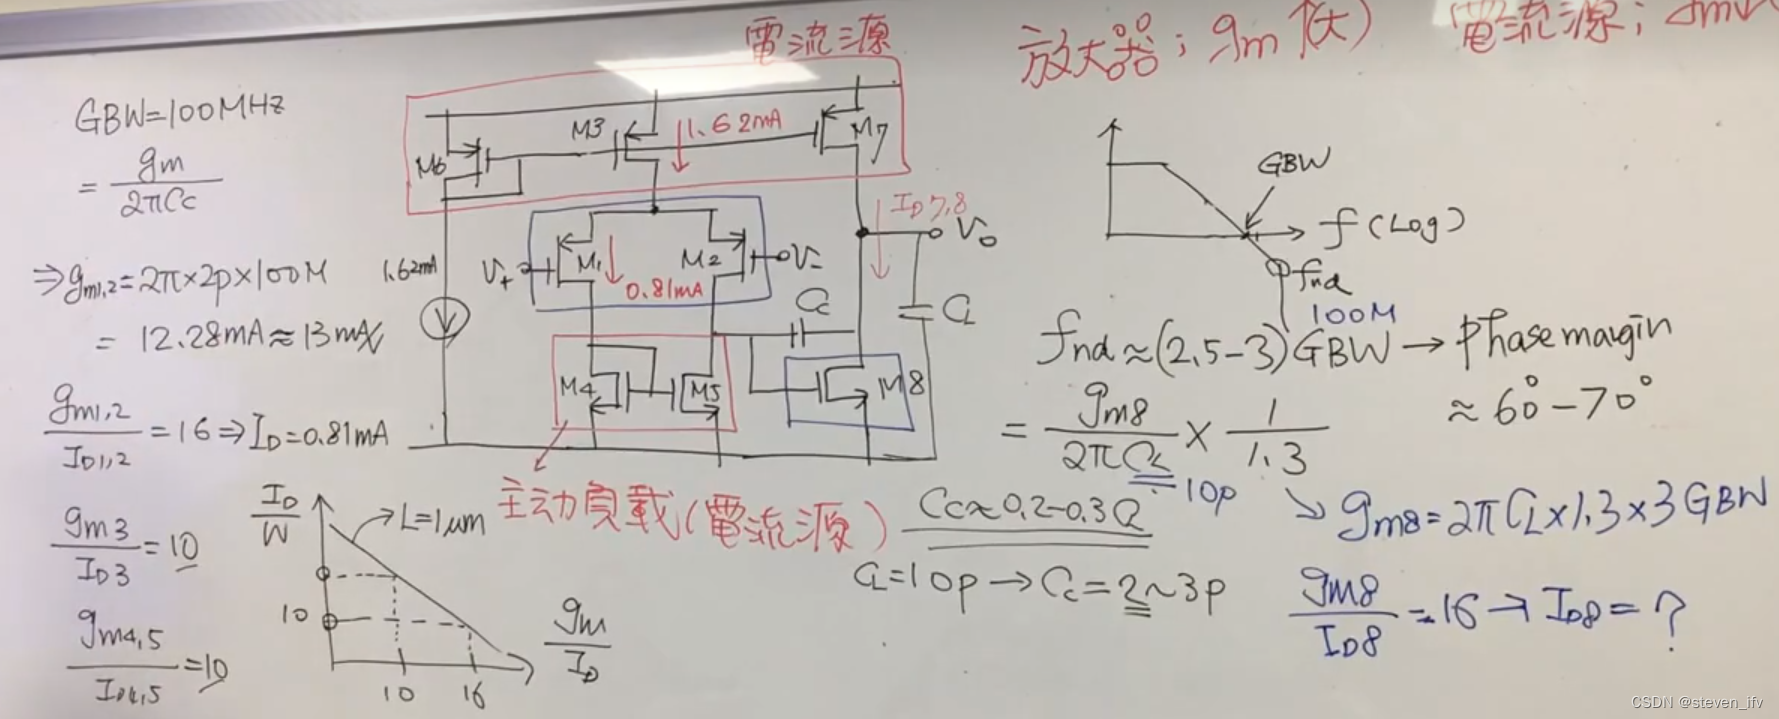 電流源
放大器；gm 大)
電流源；
GBW=100MHz
= gm / 2πCc
⇒gm1,2=2π×2p×100M
= 12.28mA≈13mA/V
gm1,2 / ID1,2 =16⇒ID=0.81mA
gm3 / ID3 =10
gm4,5 / ID4,5 =10
M6
M3
1.62mA
M7
ID7,8
Vo
V+
M1
0.81mA
M2
V-
1.62mA
Cc
CL
M4
M5
M8
主动負載(電流源)
ID / W
L=1μm
10
10
16
gm / ID
GBW
f(Log)
fnd
100M
fnd≈(2.5-3)GBW→phase margin
≈60°-70°
= gm8 / 2πCL × 1 / 1.3
10p
Cc≈0.2-0.3CL
CL=10p→Cc=2~3p
gm8=2πCL×1.3×3GBW
gm8 / ID8 =16→ID8=?
CSDN @steven_ifv